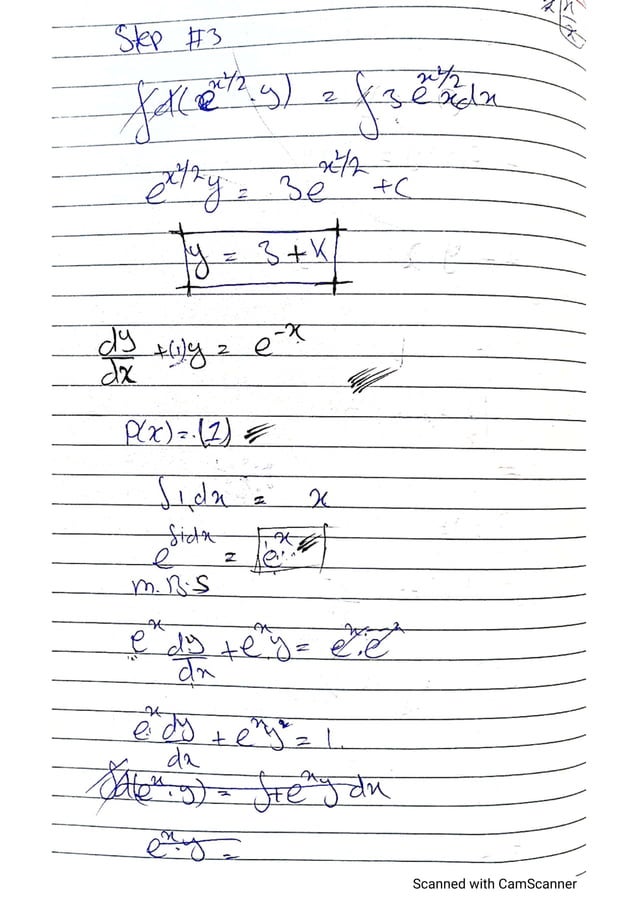 Step #3
∫d(e^(x²/2)·y) = ∫3e^(x²/2) x dx
e^(x²/2) y = 3e^(x²/2) + c
y = 3 + K
dy/dx + (1)y = e^(-x)
P(x) = (1)
∫1.dx = x
e^(∫1dx) = e^x
M.B.S
e^x dy/dx + e^x y = e^x·e^(-x)
e^x dy/dx + e^x y = 1.
∫d(e^x·y) = ∫+e^x y dx
e^x·y =
Scanned with CamScanner